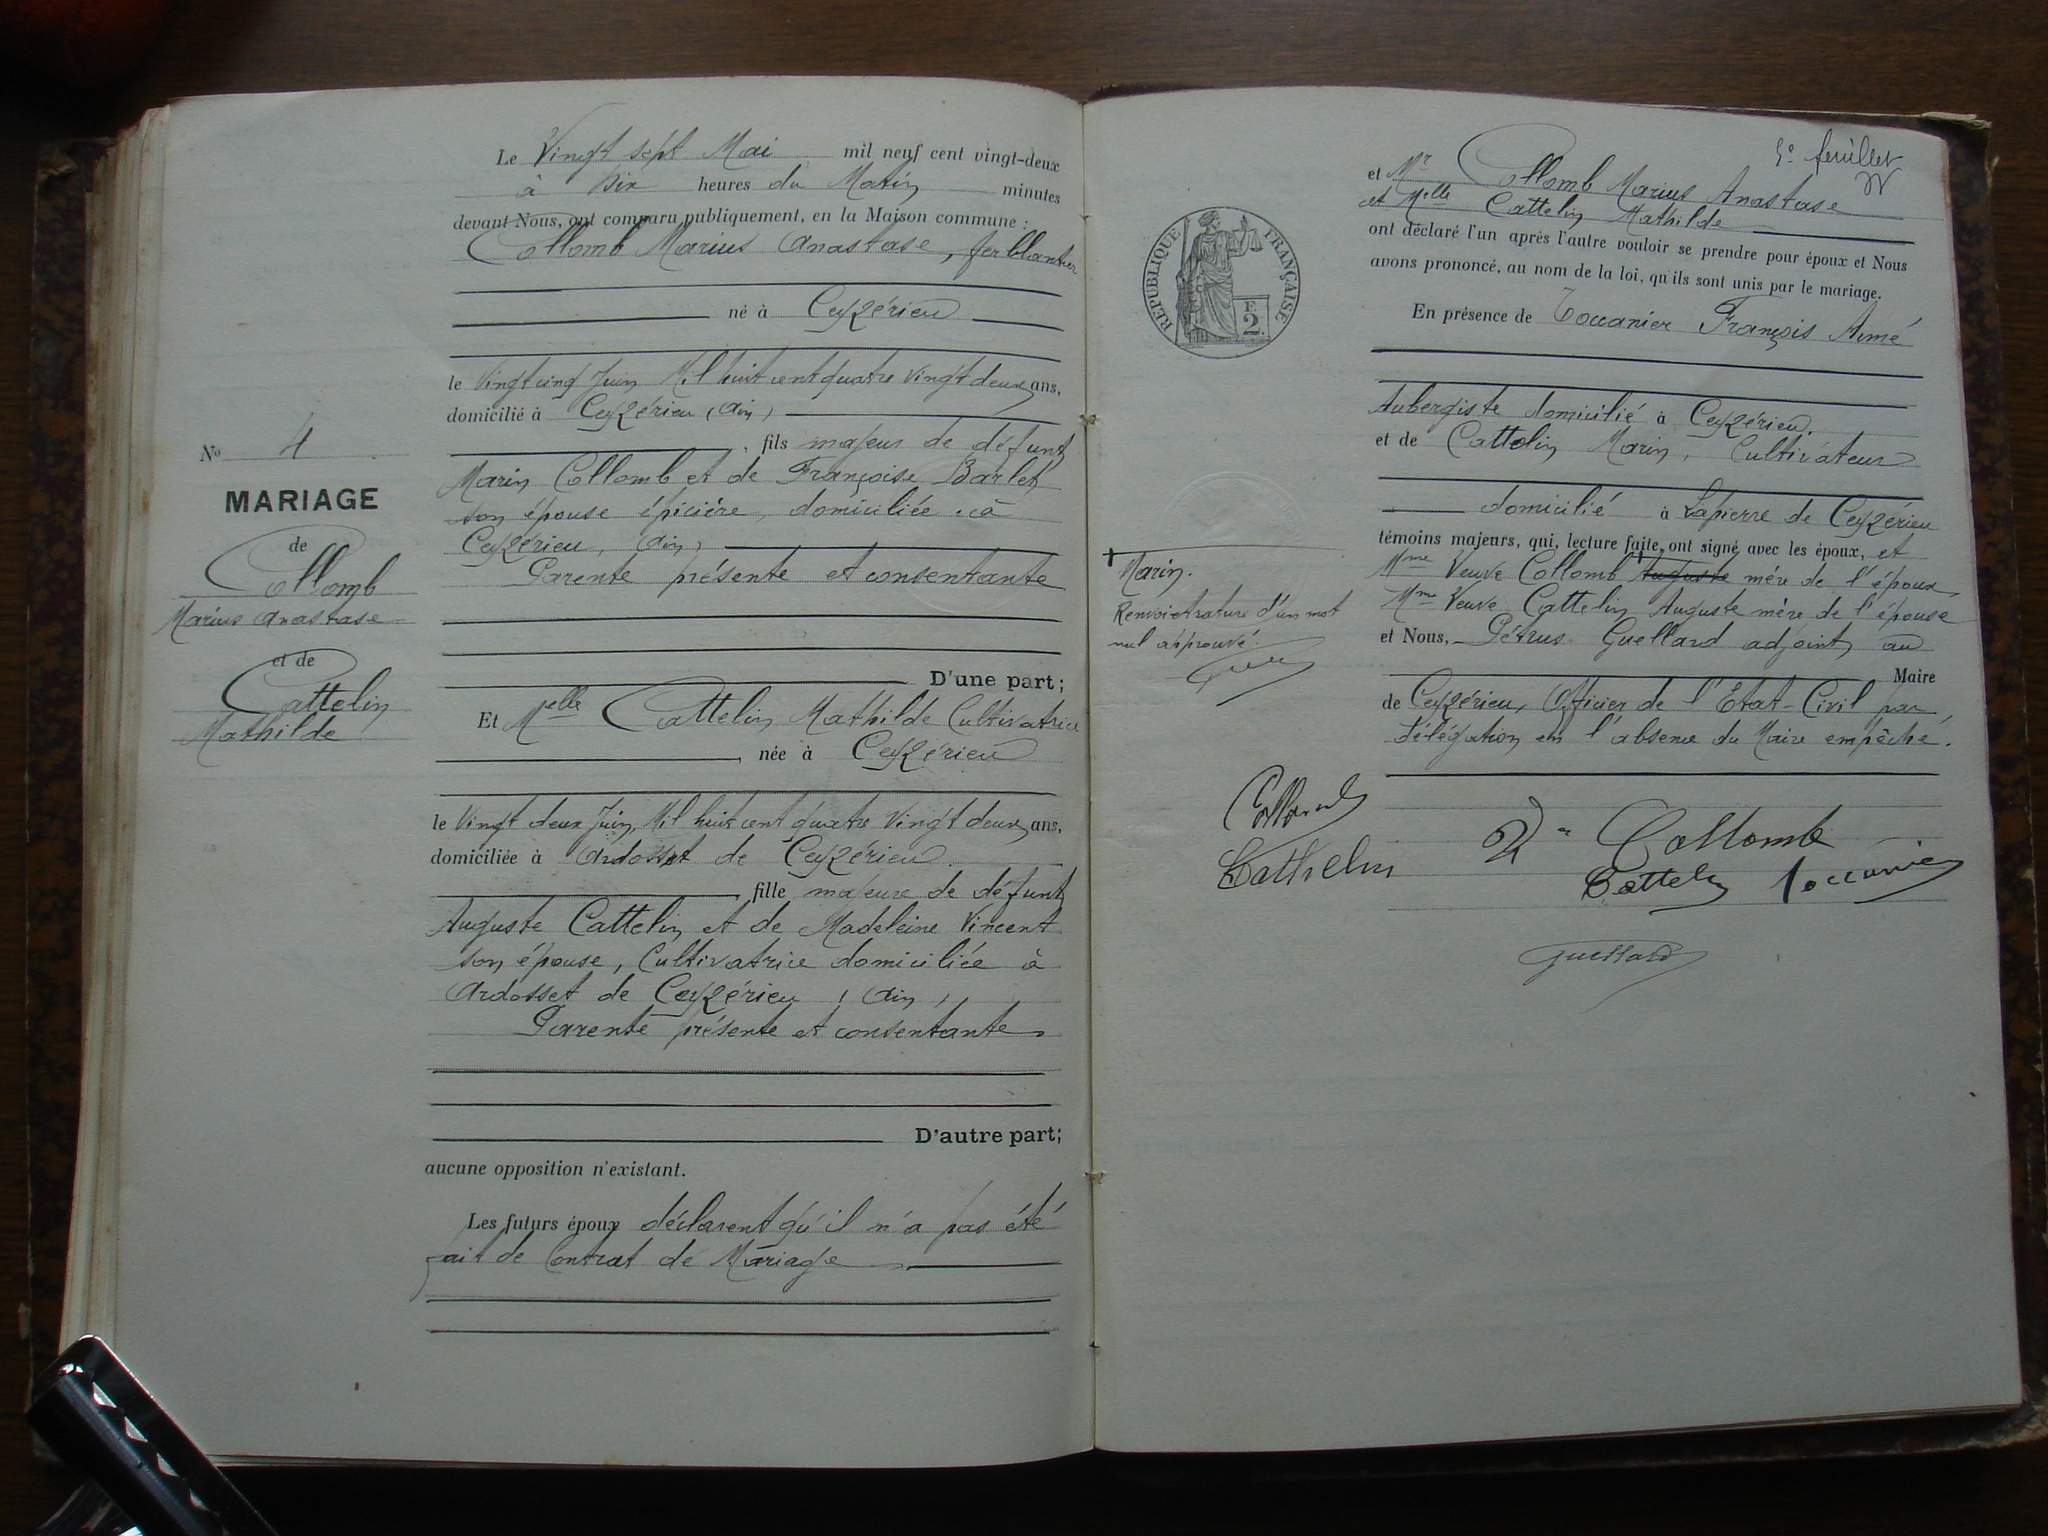 Le Vingt sept Mai mil neuf cent vingt-deux
à Dix heures du Matin minutes
devant Nous, ont comparu publiquement, en la Maison commune :
Collomb Marius Anastase, ferblantier
né à Ceyzérieu
le Vingt cinq Juin Mil huit cent quatre vingt deux ans,
domicilié à Ceyzérieu (Ain)
, fils majeur de défunt
Marin Collomb et de Françoise Barlet
son épouse épicière, domiciliée à
Ceyzérieu, (Ain)
Parente présente et consentante
D'une part;
Et Melle Cattelin Mathilde Cultivatrice
, née à Ceyzérieu
le Vingt deux Juin Mil huit cent quatre Vingt deux ans,
domiciliée à Ardosset de Ceyzérieu.
, fille majeure de défunt
Auguste Cattelin et de Madeleine Vincent
son épouse, Cultivatrice domiciliée à
Ardosset de Ceyzérieu (Ain),
Parente présente et consentante
D'autre part;
aucune opposition n'existant.
Les futurs époux déclarent qu'il n'a pas été
fait de Contrat de Mariage
No 4
MARIAGE
de
Collomb
Marius Anastase
et de
Cattelin
Mathilde
5e feuillet
et Mr Collomb Marius Anastase
et Melle Cattelin Mathilde
ont déclaré l'un après l'autre vouloir se prendre pour époux et Nous
avons prononcé, au nom de la loi, qu'ils sont unis par le mariage.
En présence de Toccanier François Aimé
Aubergiste domicilié à Ceyzérieu.
et de Cattelin Marin, Cultivateur
domicilié à Lapierre de Ceyzérieu
témoins majeurs, qui, lecture faite, ont signé avec les époux, et
Mme Veuve Collomb Auguste mère de l'époux,
Mme Veuve Cattelin Auguste mère de l'épouse
et Nous, Pétrus Guellard adjoint au
Maire
de Ceyzérieu, Officier de l'Etat-Civil par
délégation en l'absence du Maire empêché.
RÉPUBLIQUE FRANÇAISE
F.
2.
Marin.
Renvoi et rature d'un mot
nul approuvé.
Collomb
Cathelin
Vve Collomb
Cattelin Toccanier
Guellard